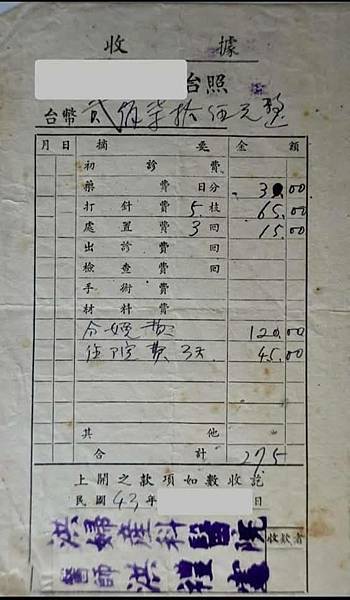 收 據
台照
台幣 貳佰柒拾伍元整
月 日 摘 要 金 額
初 診 費
藥 費 日分 30.00
打 針 費 5 枝 65.00
處 置 費 3 回 15.00
出 診 費 回
檢 查 費 回
手 術 費
材 料 費
分娩費 120.00
住院費 3天 45.00
其 他
合 計 275
上開之款項如數收訖
民國 43 年 日
洪婦產科醫院 收款者
醫師 洪